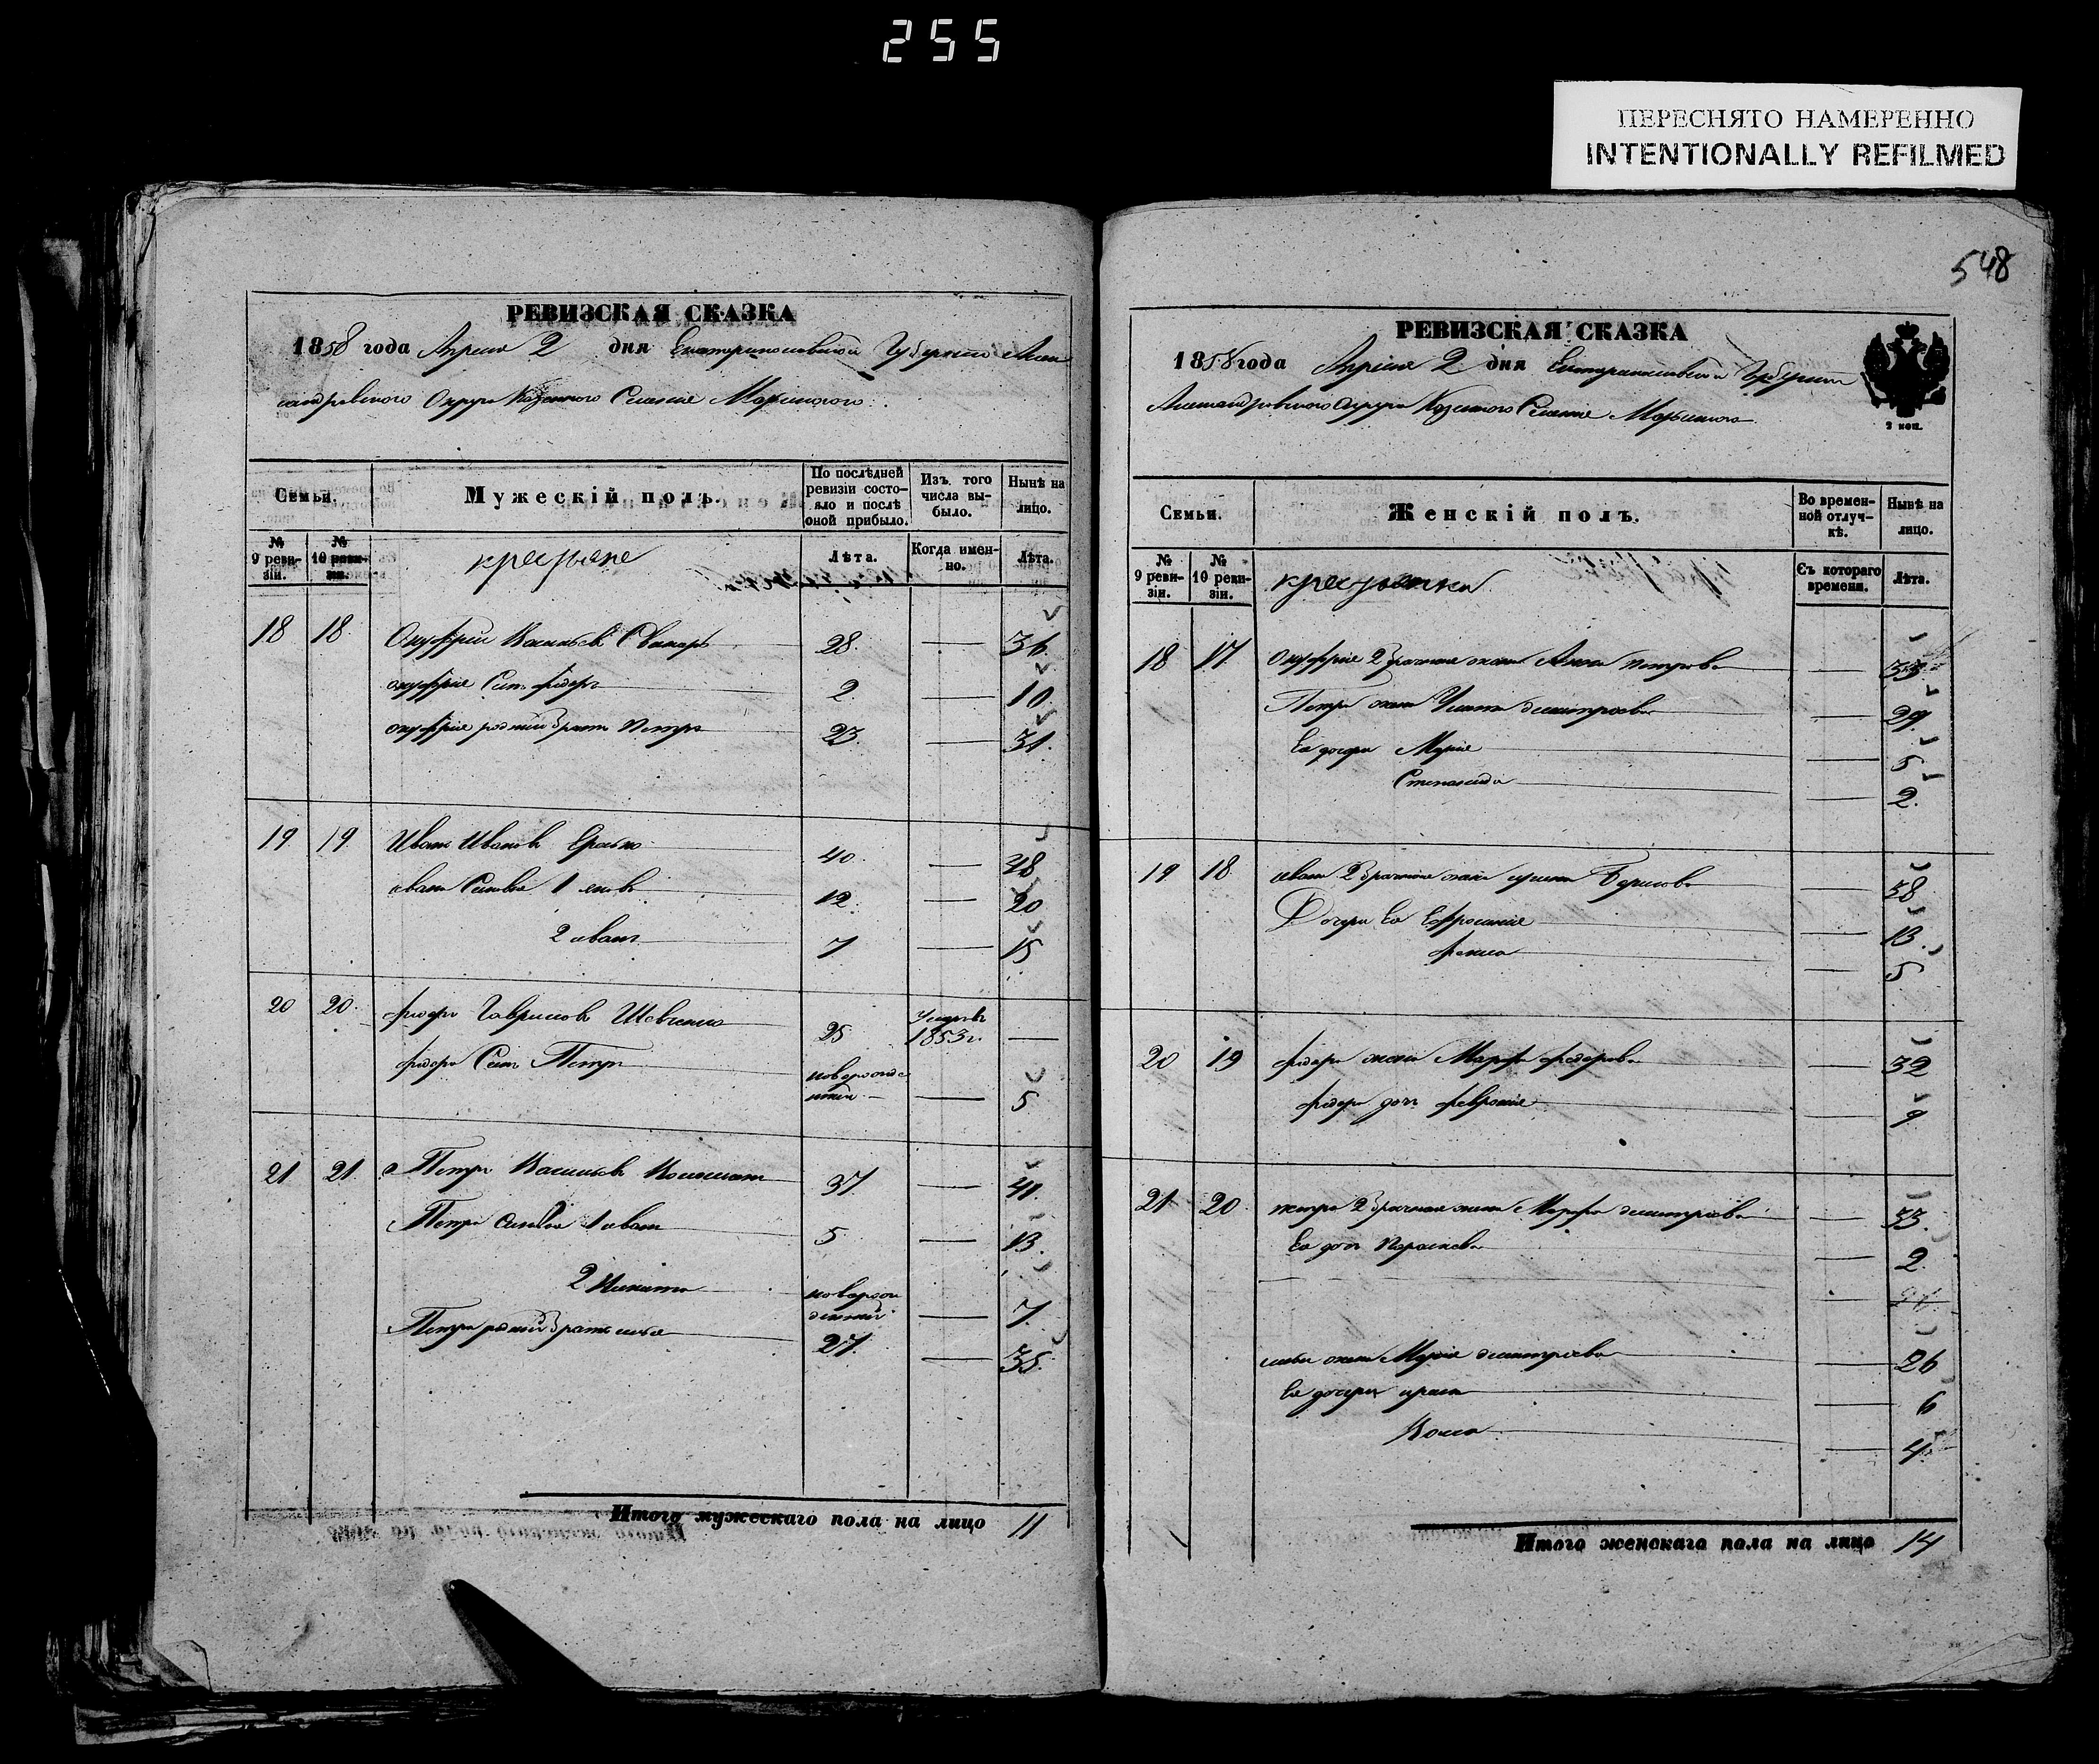 255
ПЕРЕСНЯТО НАМЕРЕННО
INTENTIONALLY REFILMED
РЕВИЗСКАЯ СКАЗКА
1858 года Апреля 2 дня Екатеринославской Губернии Алек
сандровского Округа Казенного Селения Марьинского
Семьи.
Мужескій полъ.
По послѣдней ревизіи состояло и послѣ оной прибыло.
Изъ того числа выбыло.
Нынѣ на лицо.
№ 9 ревизіи.
№ 10 ревизіи.
крестьяне
Лѣта.
Когда именно.
Лѣта.
18 18 Онуфрий Васильев 28. — 36.
онуфрия Сын федор 2 — 10
онуфрия родний брат Петр 23. — 31.
19 19 Иван Иванов 40. — 48
ивана Синовья 1 яков 12. — 20
2 иван 7 — 15
20 20 федор Гаврилов Шевченко 25 Умер в 1853 г. —
федора Син Петр новорожде
нный — 5
21 21 Петр Васильев 37 — 41.
Петра синовя 1 иван 5 — 13.
2 Никита новорож
денний — 7.
Петра родний брат илья 27 — 35.
Итого мужескаго пола на лицо 11
548
РЕВИЗСКАЯ СКАЗКА
1858 года Апреля 2 дня Екатеринославской Губернии
Александровского округа Казенного Селения Марьинского
2 коп.
Семьи.
Женскій полъ.
Во временной отлучкѣ.
Нынѣ на лицо.
№ 9 ревизіи.
№ 10 ревизіи.
крестьянки
Съ котораго времени.
Лѣта.
18 17 Онуфрия 2 брачная жена Анна петрова — 33
Петра жена Ульяна дмитрова — 29.
Ея дочери Мария — 5
Степанида — 2.
19 18 ивана 2 брачная жена Борисова — 38
Дочери Ея Ефросиния — 13.
фекла — 5
20 19 федора жена Марфа федорова — 32
федора доч феврония — 9
21 20 петра 2 брачная жена Марфа дмитрова — 33.
Ея доч параскева — 2.
ильи жена Мария дмитрова — 26
Ея дочери ирина — 6
— 4
Итого женскаго пола на лицо 14